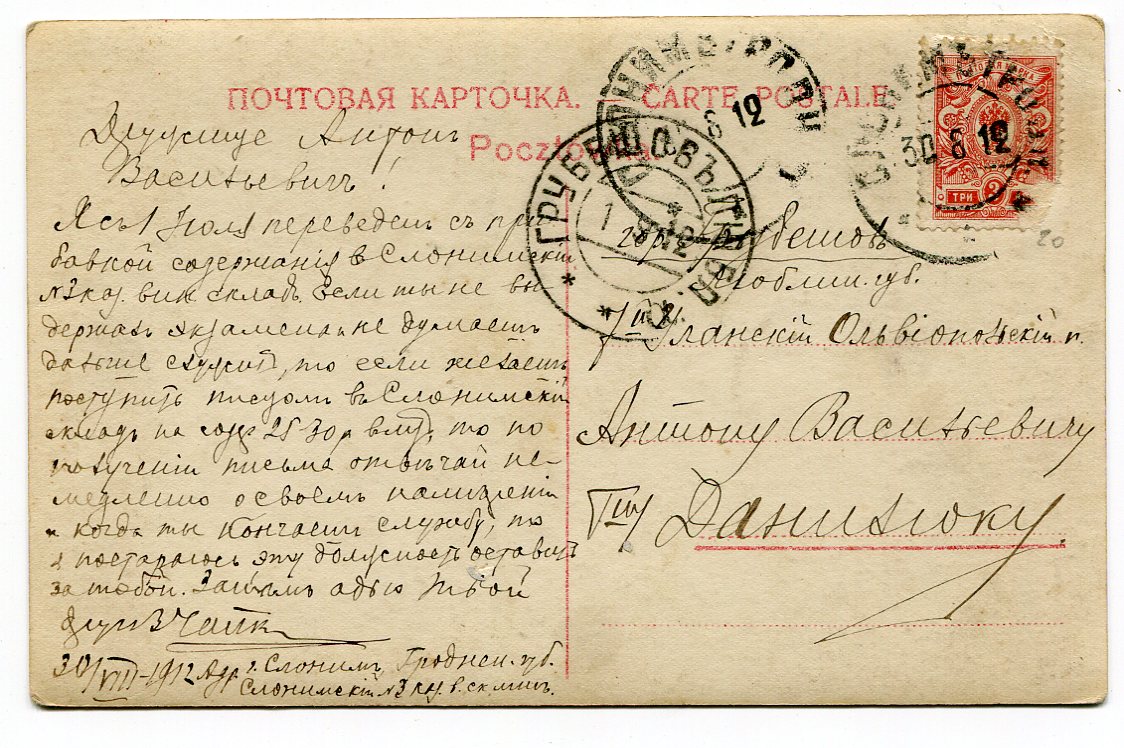 ПОЧТОВАЯ КАРТОЧКА. — CARTE POSTALE
Pocztów
Дружище Антон
Васильевич!
Я съ 1 Юля переведен съ при
бавкой содержания в Слонимскій
№3 каз. вин. склад. Если ты не вы
держал экзамена и не думаешь
дальше служить, то если желаешь
поступить писцом въ Слонимскій
склад на 25-30 р. то по
получении письма отвѣчай не-
медленно о своемъ намѣреніи
и когда ты кончаешь службу, то
я постараюсь эту должность оставить
за тобой. Затѣмъ адью Твой
друг В Чайк
30/VIII-1912 Адр. г. Слонимъ, Гроднен. губ.
Слонимскій №3 каз. в. скл.
гор. Грубешовъ
Люблин. губ.
Уланскій Ольвіопольскій п.
Антону Васильевичу
Гну Данилюку.
ГРУБЕШОВЪ ЛЮБЛ.
1 9 12
8 12
30 8 12
ТРИ 3
20